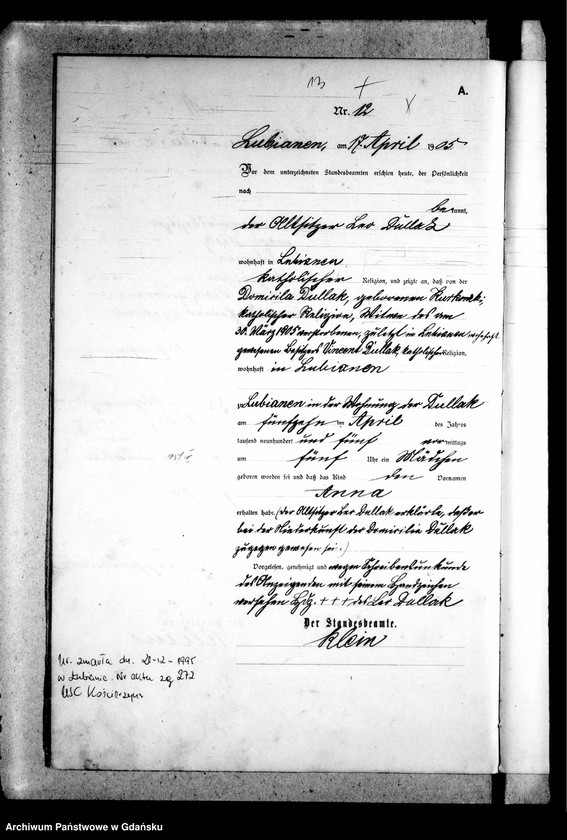 13
A.
Nr. 12
Lubianen, am 17 April 1905
Vor dem unterzeichneten Standesbeamten erschien heute, der Persönlichkeit
nach
bekannt,
der Altsitzer Leo Dullak
wohnhaft in Lubianen
katholischer Religion, und zeigte an, daß von der
Domicila Dullak, geborenen
katholischer Religion, Witwe des am
30. März 1905 verstorbenen, zuletzt in Lubianen wohnhaft
gewesenen Besitzers Vincent Dullak, katholischer Religion,
wohnhaft in Lubianen
zu Lubianen in der Wohnung der Dullak
am fünfzehn ten April des Jahres
tausend neunhundert und fünf vor mittags
um fünf Uhr ein Mädchen
geboren worden sei und daß das Kind den Vornamen
Anna
erhalten habe. (Der Altsitzer Leo Dullak erklärte, daß er
bei der Niederkunft der Domicilia Dullak
zugegen gewesen sei.)
Vorgelesen, genehmigt und wegen Schreibensunkunde
des Anzeigenden mit seinem Handzeichen
versehen Hdz. + + + des Leo Dullak
Der Standesbeamte.
Klein
Ur. zmarła dn. 21-12-1995
w Łubianie. Nr aktu zg. 272
USC Kościerzyna
Archiwum Państwowe w Gdańsku